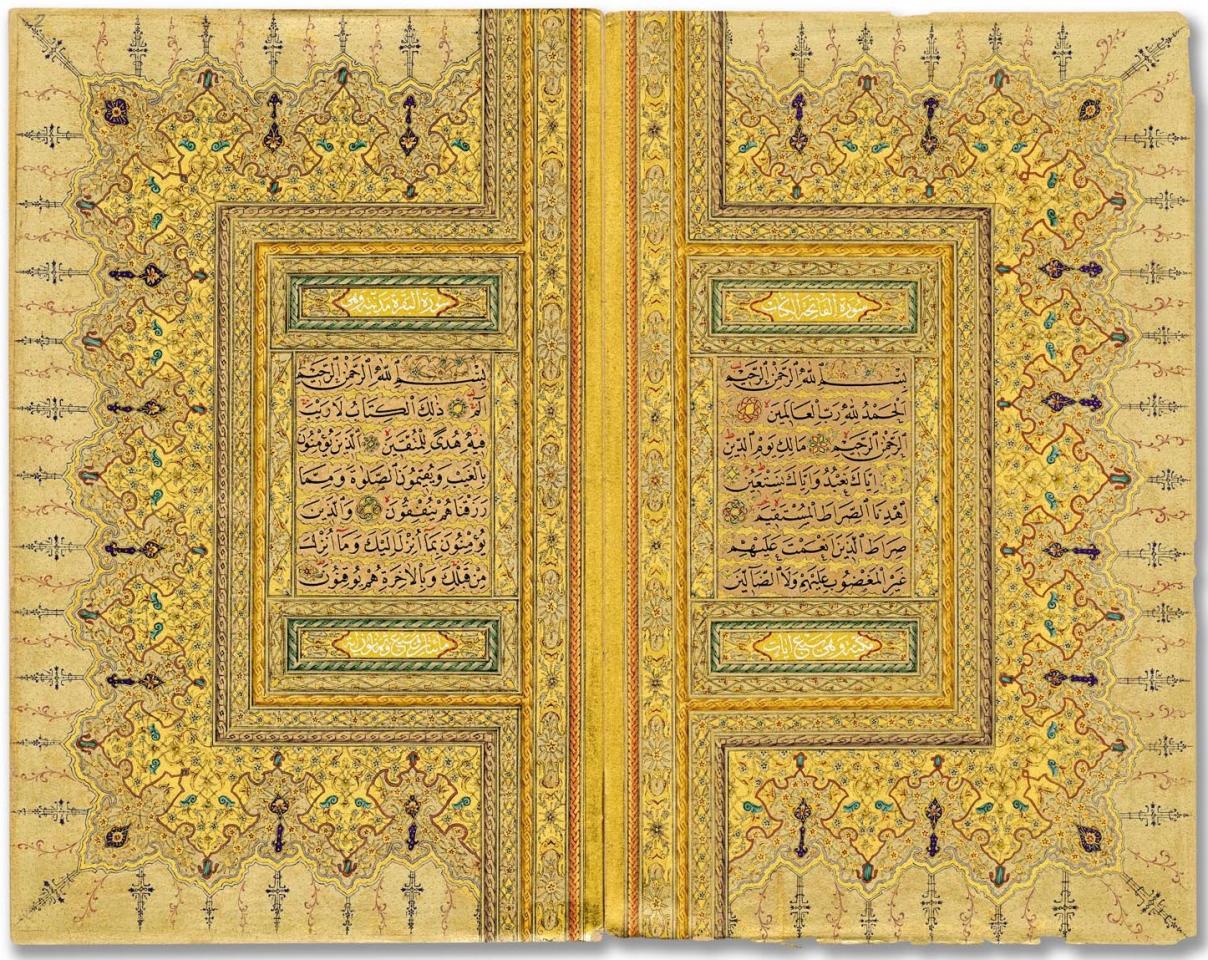 سورة الفاتحة الكتاب
بِسْمِ ٱللَّهِ ٱلرَّحْمٰنِ ٱلرَّحِيمِ
اَلْحَمْدُ لِلَّهِ رَبِّ ٱلْعَالَمِينَ
اَلرَّحْمٰنِ ٱلرَّحِيمِ مَالِكِ يَوْمِ ٱلدِّينِ
اِيَّاكَ نَعْبُدُ وَاِيَّاكَ نَسْتَعِينُ
اِهْدِنَا ٱلصِّرَاطَ ٱلْمُسْتَقِيمَ
صِرَاطَ ٱلَّذِينَ اَنْعَمْتَ عَلَيْهِمْ
غَيْرِ ٱلْمَغْضُوبِ عَلَيْهِمْ وَلَا ٱلضَّالِّينَ
مكية وهي سبع ايات
سورة البقرة مدنية وهي
بِسْمِ ٱللَّهِ ٱلرَّحْمٰنِ ٱلرَّحِيمِ
الٓمٓ ذٰلِكَ ٱلْكِتَابُ لَا رَيْبَ
فِيهِ هُدًى لِلْمُتَّقِينَ اَلَّذِينَ يُؤْمِنُونَ
بِٱلْغَيْبِ وَيُقِيمُونَ ٱلصَّلٰوةَ وَمِمَّا
رَزَقْنَاهُمْ يُنْفِقُونَ وَٱلَّذِينَ
يُؤْمِنُونَ بِمَآ اُنْزِلَ اِلَيْكَ وَمَآ اُنْزِلَ
مِنْ قَبْلِكَ وَبِٱلْاٰخِرَةِ هُمْ يُوقِنُونَ
مائتان وسبع وثمانون اية